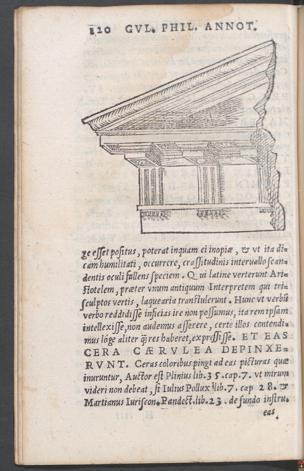 120 GVL. PHIL. ANNOT.
ge esset positus, poterat inquam ei inopiæ, & vt ita di-
cam humilitati, occurrere, crassitudinis interuallo scan-
dentis oculi fallens speciem. Qui latine verterunt Ari-
stotelem, præter vnum antiquum Interpretem qui tri-
sculptos vertis, laquearia transtulerunt. Hunc vt verbũ
verbo reddidisse inficias ire non possumus, ita rem ipsam
intellexisse, non audemus asserere, certe illos contendi-
mus lõge aliter q̃ res haberet, expressisse. ET EAS
CERA CÆRVLEA DEPINXE-
RVNT. Ceras coloribus pingi ad eas picturas quæ
inuruntur, Auctor est Plinius lib. 35. cap. 7. vt mirum
videri non debeat, si Iulius Pollux lib. 7. cap 28. &
Martianus Iuriscon. Pandect. lib. 23. de fundo instru.
eas